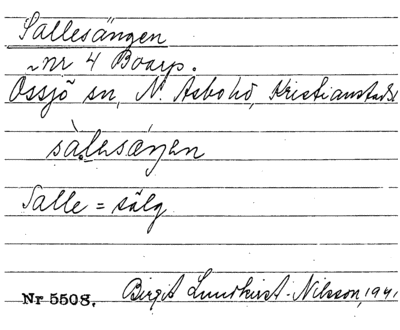 Sallesängen
~nr 4 Boarp.
Össjö sn, N. Åsbo hd, Kristianstads l
sàlesäŋen
Salle = sälg
Nr 5508. Birgit Lundkvist-Nilsson, 1941